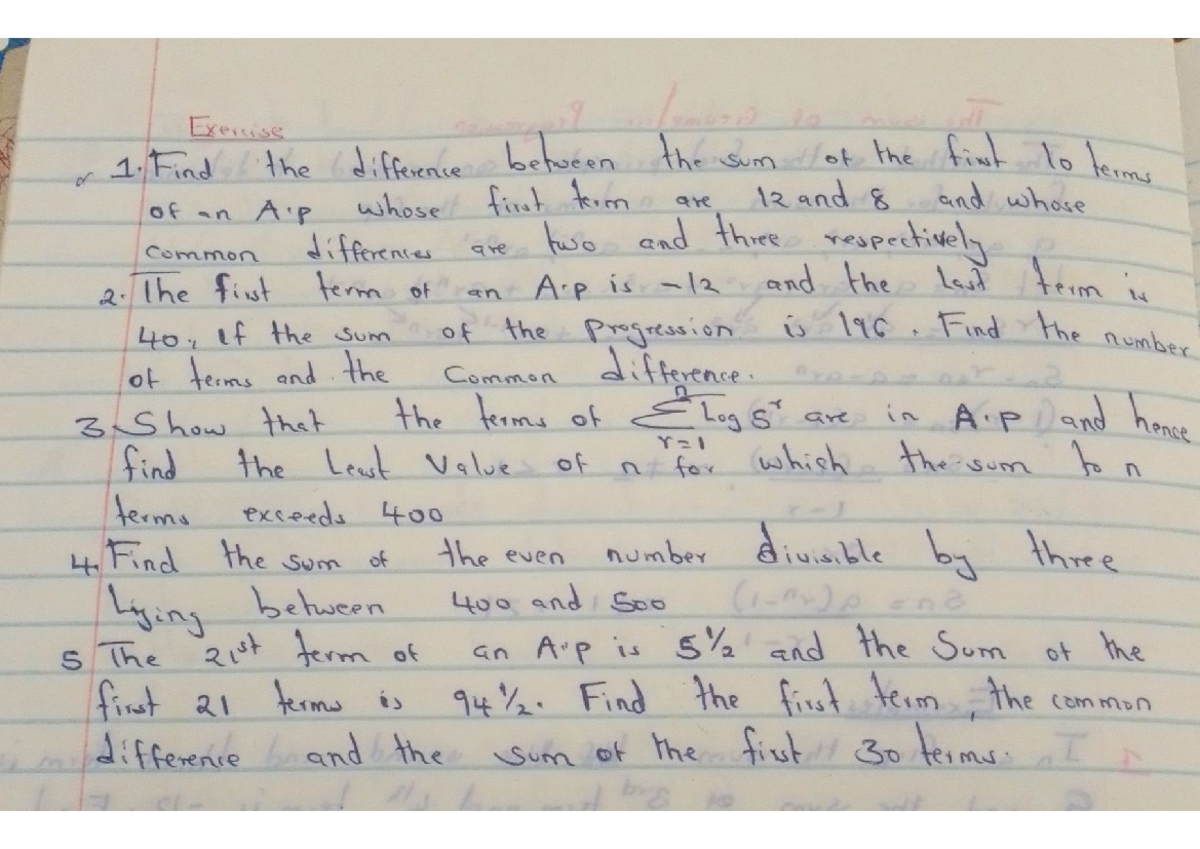 Exercise
1. Find the difference between the sum of the first 10 terms
of an A.p whose first term are 12 and 8 and whose
common differences are two and three respectively
2. The first term of an A.p is -12 and the last term is
40, if the sum of the progression is 196. Find the number
of terms and the Common difference.
3 Show that the terms of \sum_{r=1}^{n} Log 5^r are in A.p and hence
find the Least Value of n for which the sum to n
terms exceeds 400
4. Find the sum of the even number divisible by three
Lying between 400 and 500
5 The 21st term of an A.p is 5 1/2 and the Sum of the
first 21 terms is 94 1/2. Find the first term, the common
difference and the sum of the first 30 terms.